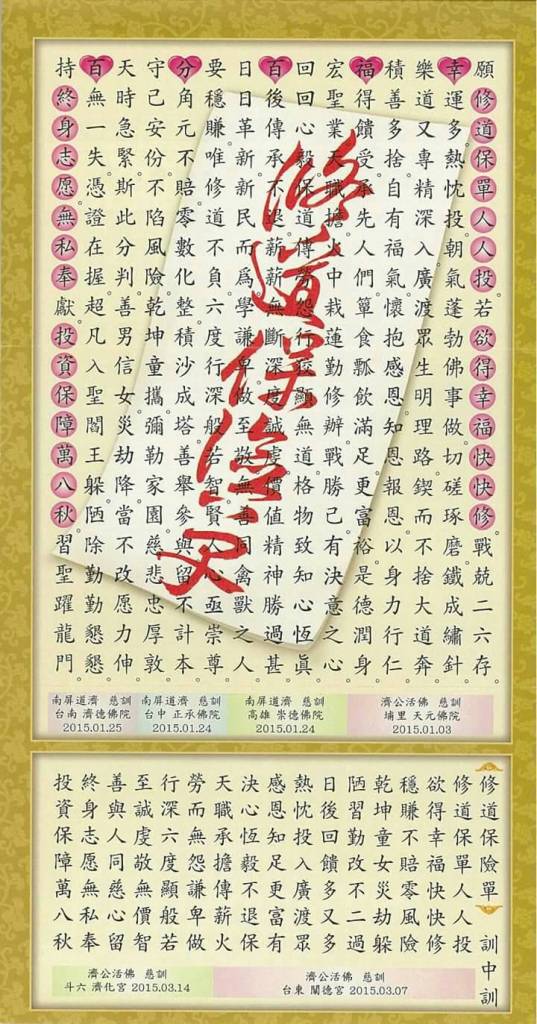 願修道保單人人投若欲得幸福快快修戰兢二六存
幸運多熱忱投朝氣蓬勃佛事做切磋琢磨鐵成繡針
樂道又專精深入廣渡眾生明理路鍥而不捨大道奔
積善多捨自有福氣懷抱感恩知恩報恩以身力行仁
福得饋受承先人們簞食瓢飲滿足更富裕是德潤身
宏聖業天職擔火中栽蓮勤修辦戰勝己有決意之心
回回心毅保道傳勞怨行顯無道格物致知心恆真
百後傳承不退薪薪無斷深度誠虔價值精神勝過甚
日日革新新民而為學謙卑做至敬無善同禽獸之人
要穩賺唯修道不負六度行深般若智賢人心亟崇尊
分角元不賠零數化整積沙成塔善舉參與留不計本
守己安份不陷風險乾坤童攜彌勒家園慈悲忠厚敦
天時急緊斯此分判善男信女災劫降當不改愿力伸
百無一失憑證在握超凡入聖閻王躲陋除勤勤懇懇
持終身志愿無私奉獻投資保障萬八秋習聖躍龍門
修道保險
南屏道濟 慈訓
台南 濟德佛院
2015.01.25
南屏道濟 慈訓
台中 正承佛院
2015.01.24
南屏道濟 慈訓
高雄 崇德佛院
2015.01.24
濟公活佛 慈訓
埔里 天元佛院
2015.01.03
修道保險單 訓中訓
修道保單人人投
欲得幸福快快修
穩賺不賠零風險
乾坤童女災劫躲
陋習勤改不二過
日後回饋多又多
熱忱投入廣渡眾
感恩知足更富有
決心恆毅不退保
天職承擔傳薪火
勞而無怨謙卑做
行深六度顯般若
至誠虔敬無價智
善與人同慈心留
終身志愿無私奉
投資保障萬八秋
濟公活佛 慈訓
斗六 濟化宮 2015.03.14
濟公活佛 慈訓
台東 闡德宮 2015.03.07